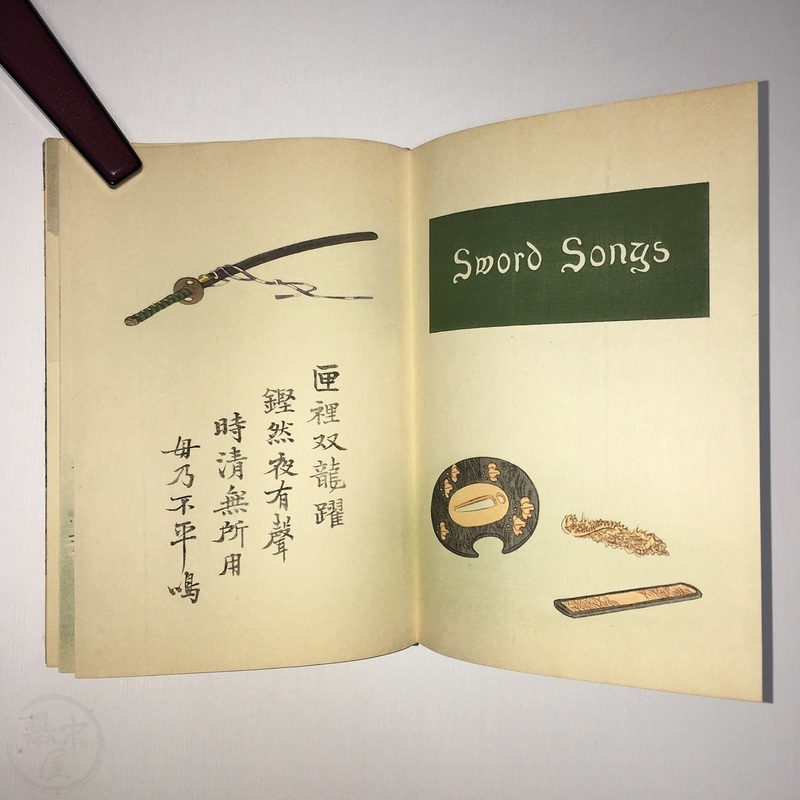 匣裡双龍躍
鏗然夜有聲
時清無所用
毋乃不平鳴
Sword Songs
幕末屋